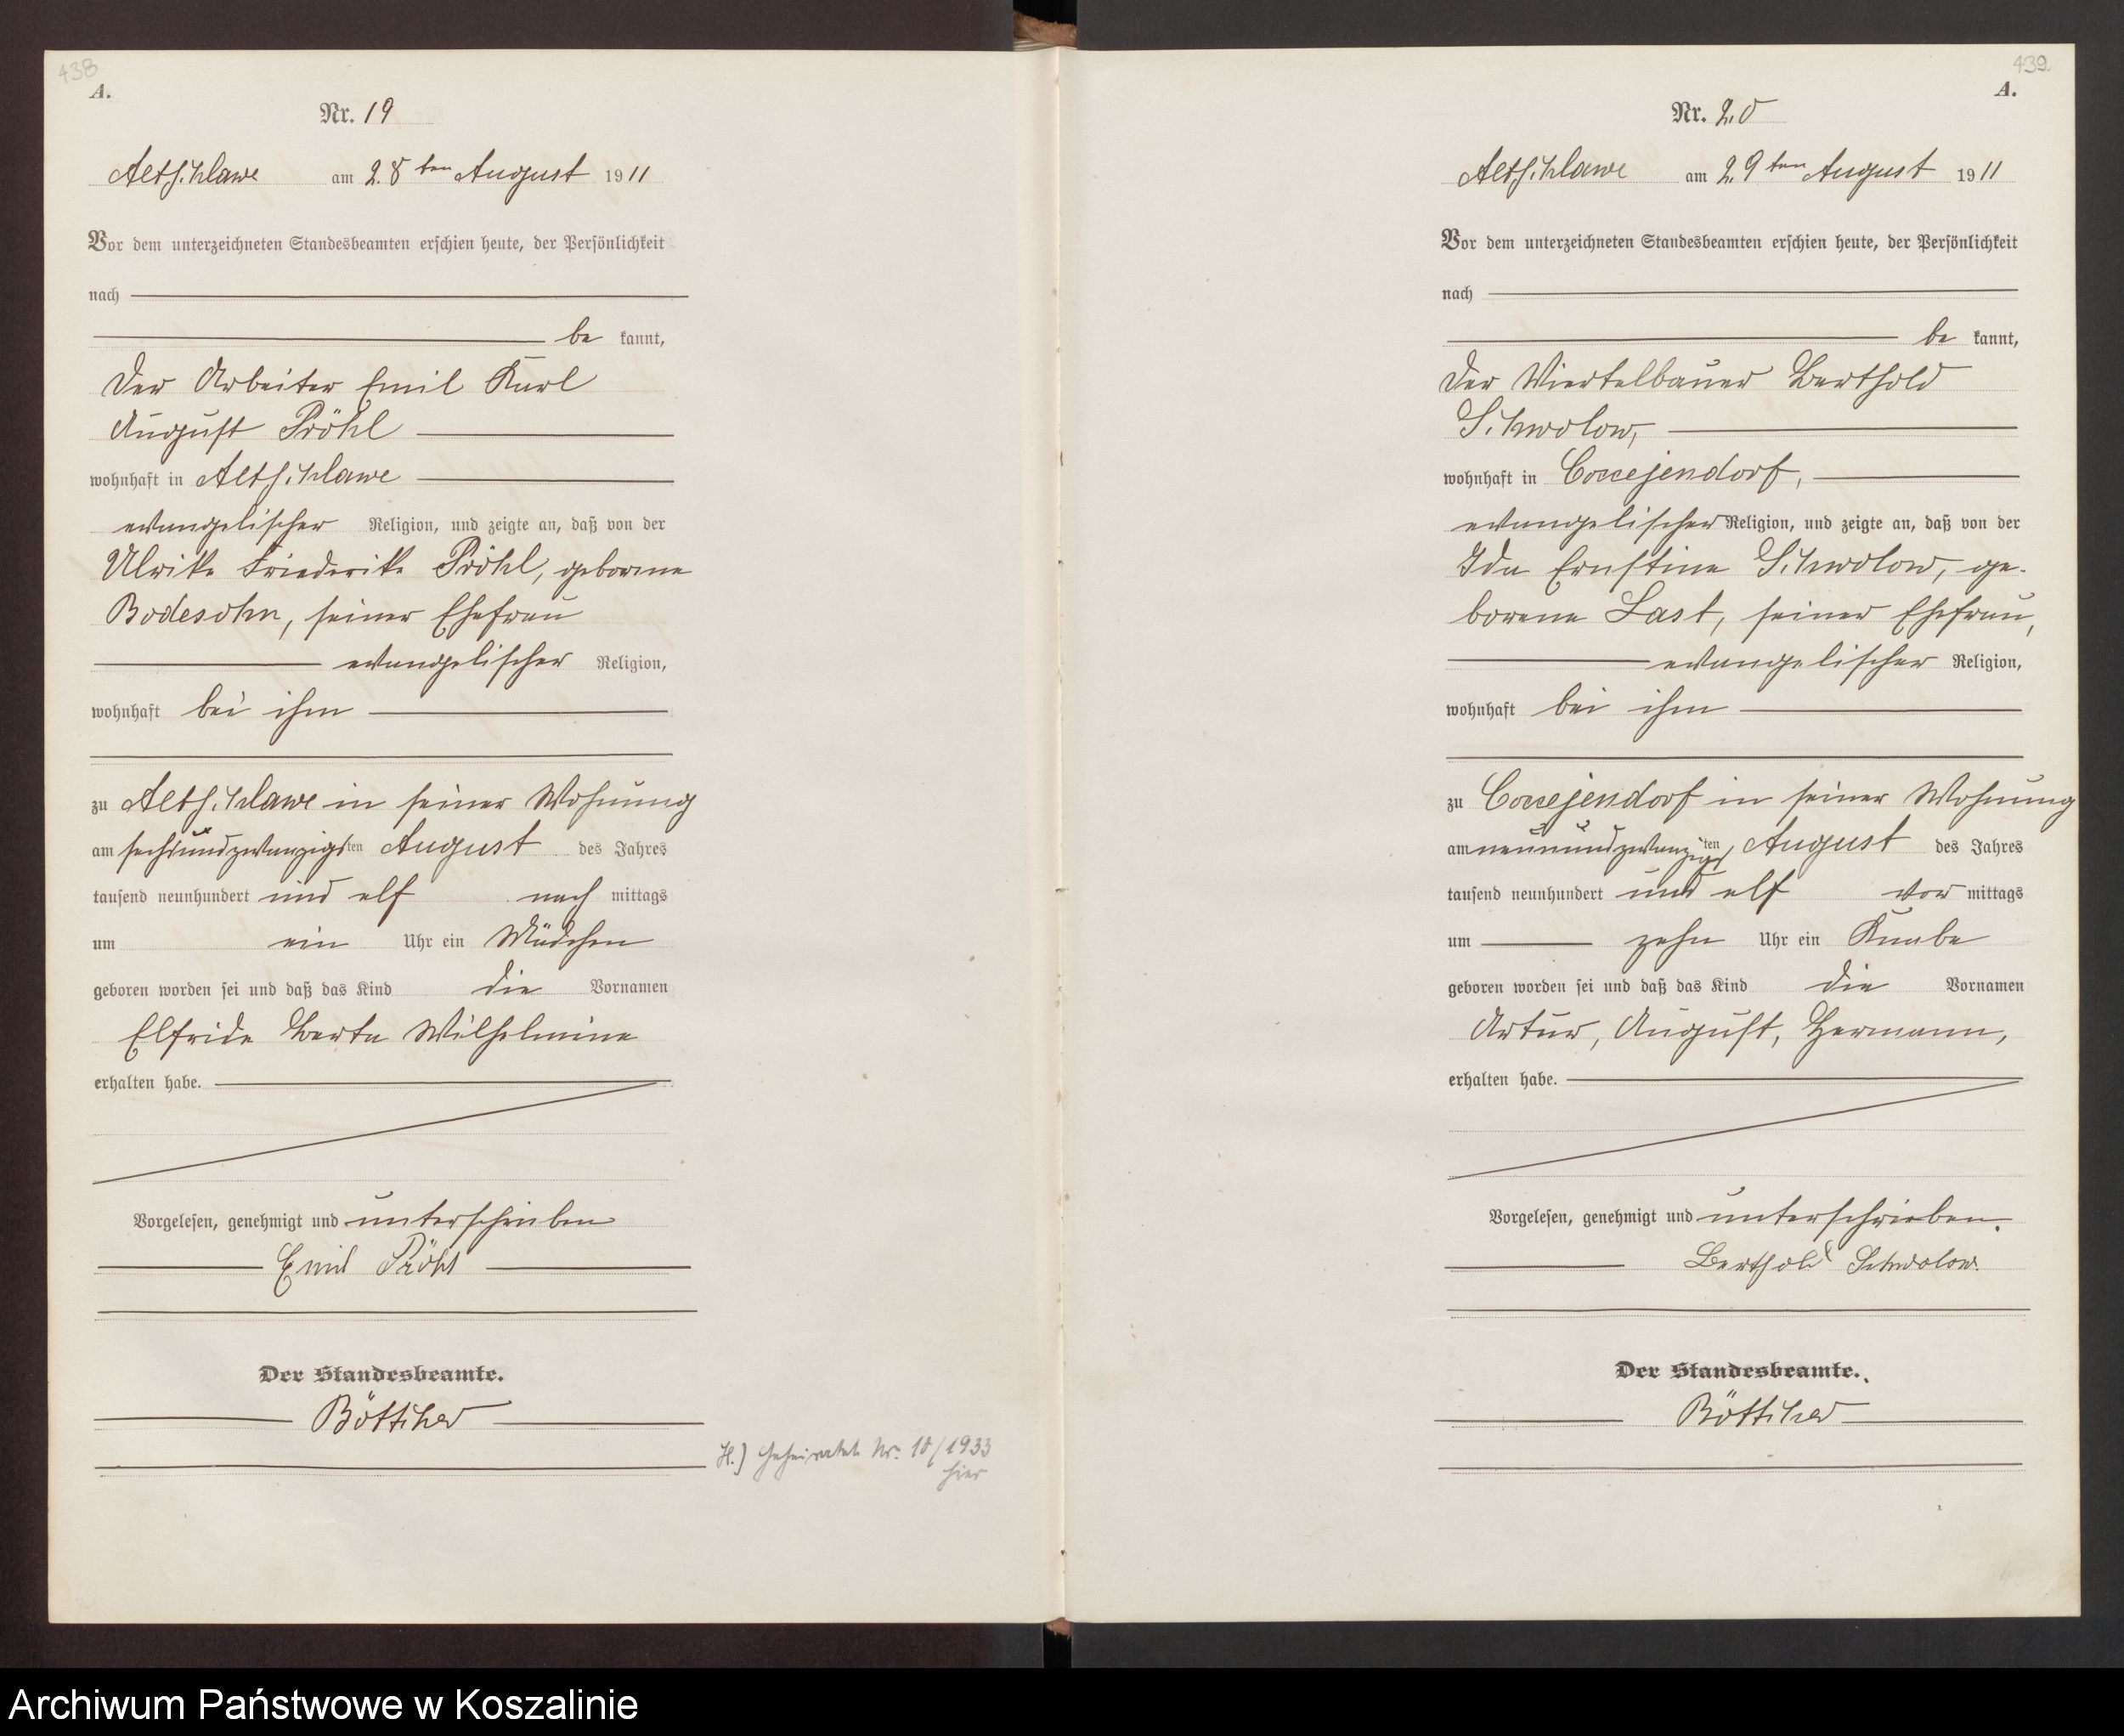 438
A.
Nr. 19
Altschlawe am 28ten August 1911
Vor dem unterzeichneten Standesbeamten erschien heute, der Persönlichkeit
nach
be kannt,
der Arbeiter Emil Karl
August Pröhl
wohnhaft in Altschlawe
evangelischer Religion, und zeigte an, daß von der
Ulrike Friederike Pröhl, geborene
Bodesohn, seiner Ehefrau
evangelischer Religion,
wohnhaft bei ihm
zu Altschlawe in seiner Wohnung
am sechsundzwanzigsten August des Jahres
tausend neunhundert und elf nach mittags
um ein Uhr ein Mädchen
geboren worden sei und daß das Kind die Vornamen
Elfride Berta Wilhelmine
erhalten habe.
Vorgelesen, genehmigt und unterschrieben
Emil Pröhl
Der Standesbeamte.
Böttcher
H.) Geheiratet Nr. 10/1933
hier
439.
A.
Nr. 20
Altschlawe am 29ten August 1911
Vor dem unterzeichneten Standesbeamten erschien heute, der Persönlichkeit
nach
be kannt,
der Viertelbauer Berthold
Schwolow,
wohnhaft in Coccejendorf,
evangelischer Religion, und zeigte an, daß von der
Ida Ernstine Schwolow, ge-
borene Last, seiner Ehefrau,
evangelischer Religion,
wohnhaft bei ihm
zu Coccejendorf in seiner Wohnung
am neunundzwanzigsten August des Jahres
tausend neunhundert und elf vor mittags
um zehn Uhr ein Knabe
geboren worden sei und daß das Kind die Vornamen
Artur, August, Hermann,
erhalten habe.
Vorgelesen, genehmigt und unterschrieben.
Berthold Schwolow.
Der Standesbeamte.
Böttcher
Archiwum Państwowe w Koszalinie